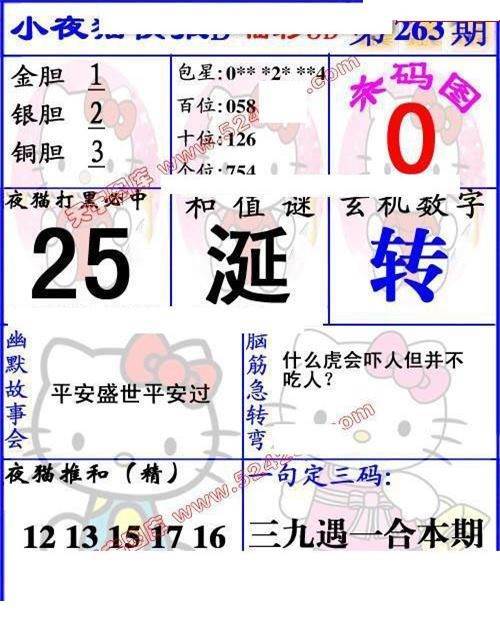 小夜
第263期
金胆 1
银胆 2
铜胆 3
包星:0** *2* **4
百位:058
十位:126
个位:754
杀码图
0
夜猫打黑必中
25
和值谜
涎
玄机数字
转
幽默故事会
平安盛世平安过
脑筋急转弯
什么虎会吓人但并不
吃人?
夜猫推和(精)
12 13 15 17 16
一句定三码:
三九遇一合本期